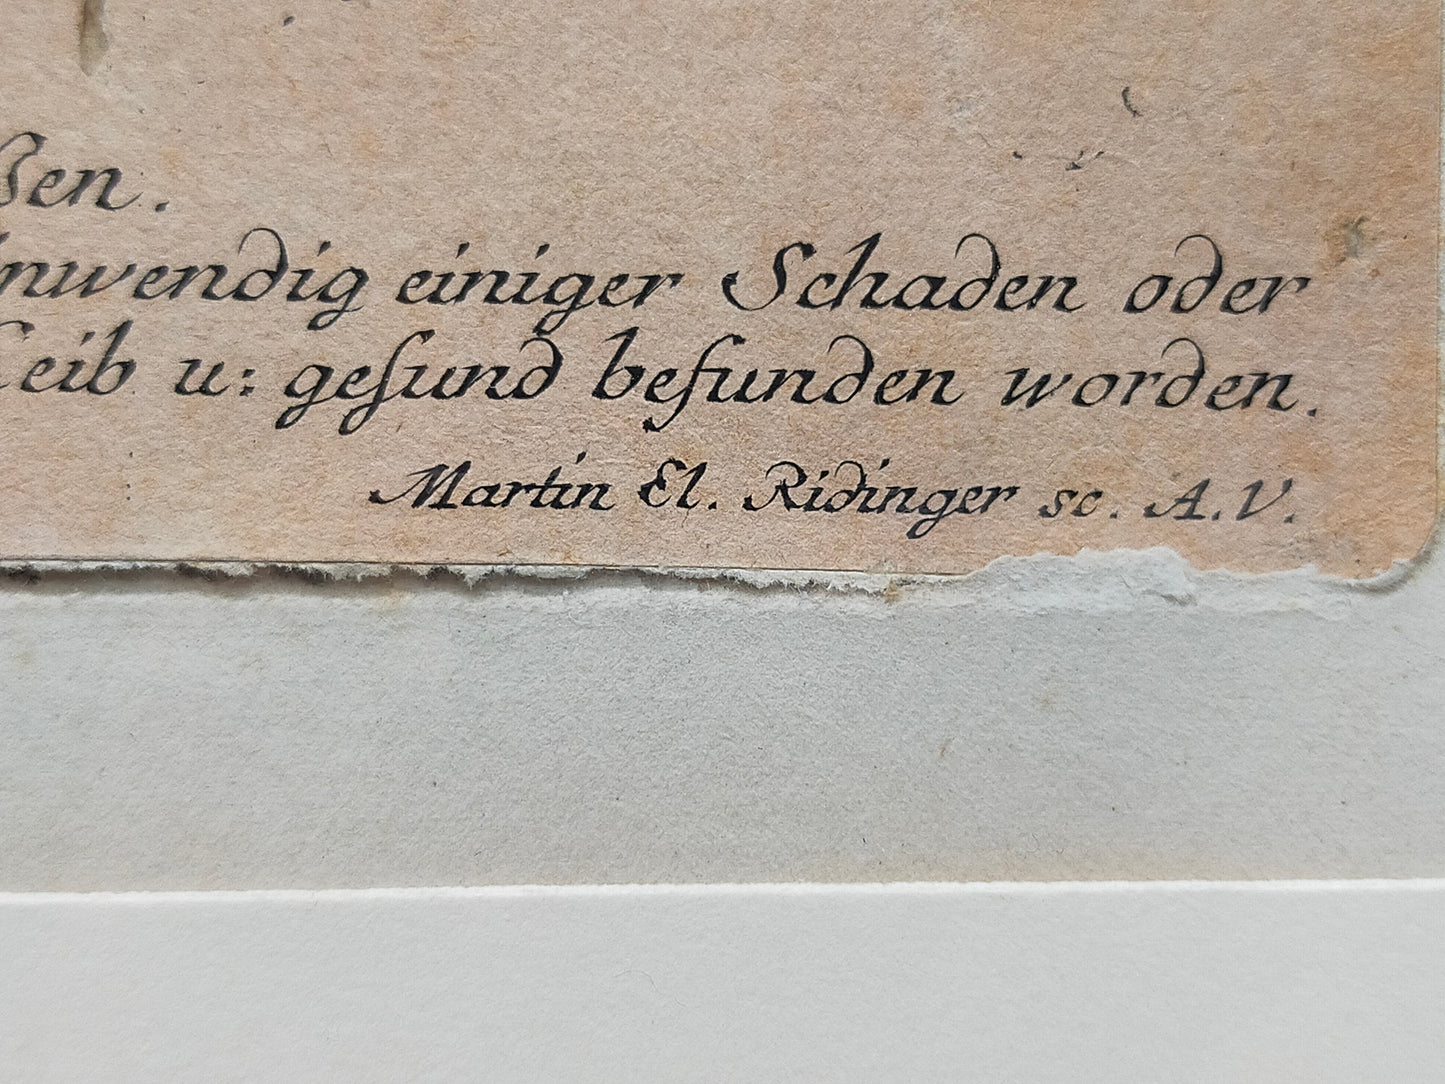 ßen.
inwendig einiger Schaden oder
Leib u: gesund befunden worden.
Martin El. Ridinger sc. A.V.